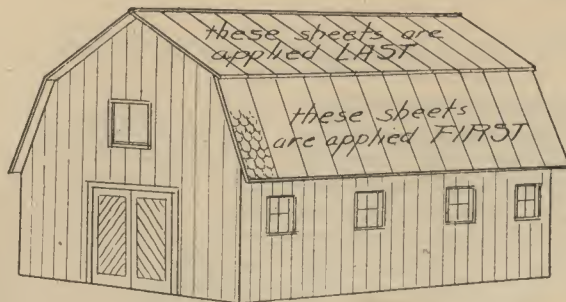 these sheets are
applied LAST
these sheets
are applied FIRST